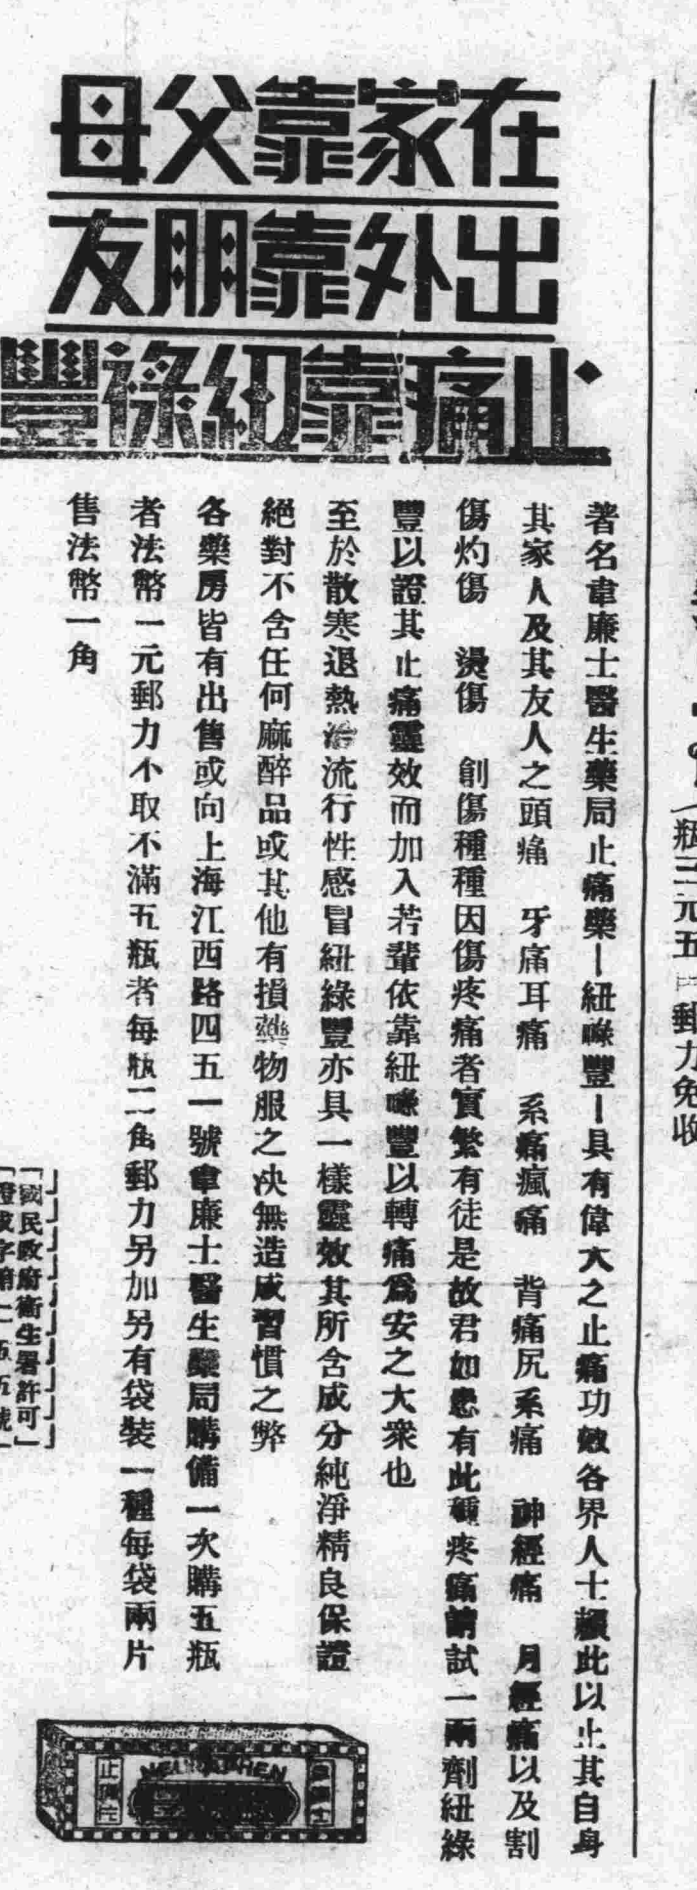 在家靠父母
出外靠朋友
止痛靠紐祿豐
著名韋廉士醫生藥局止痛藥—紐綠豐—具有偉大之止痛功效各界人士賴此以止其自身
其家人及其友人之頭痛 牙痛耳痛 系痛瘋痛 背痛尻系痛 神經痛 月經痛以及割
傷灼傷 燙傷 創傷種種因傷疼痛者實繁有徒是故君如患有此種疼痛請試一兩劑紐綠
豐以證其止痛靈效而加入若輩依靠紐綠豐以轉痛為安之大衆也
至於散寒退熱治流行性感冒紐綠豐亦具一樣靈效其所含成分純淨精良保證
絕對不含任何麻醉品或其他有損藥物服之決無造成習慣之弊
各藥房皆有出售或向上海江西路四五一號韋廉士醫生藥局購備一次購五瓶
者法幣一元郵力不取不滿五瓶者每瓶二角郵力另加另有袋裝一種每袋兩片
售法幣一角
「國民政府衛生署許可」
瓶三元五 郵力免收